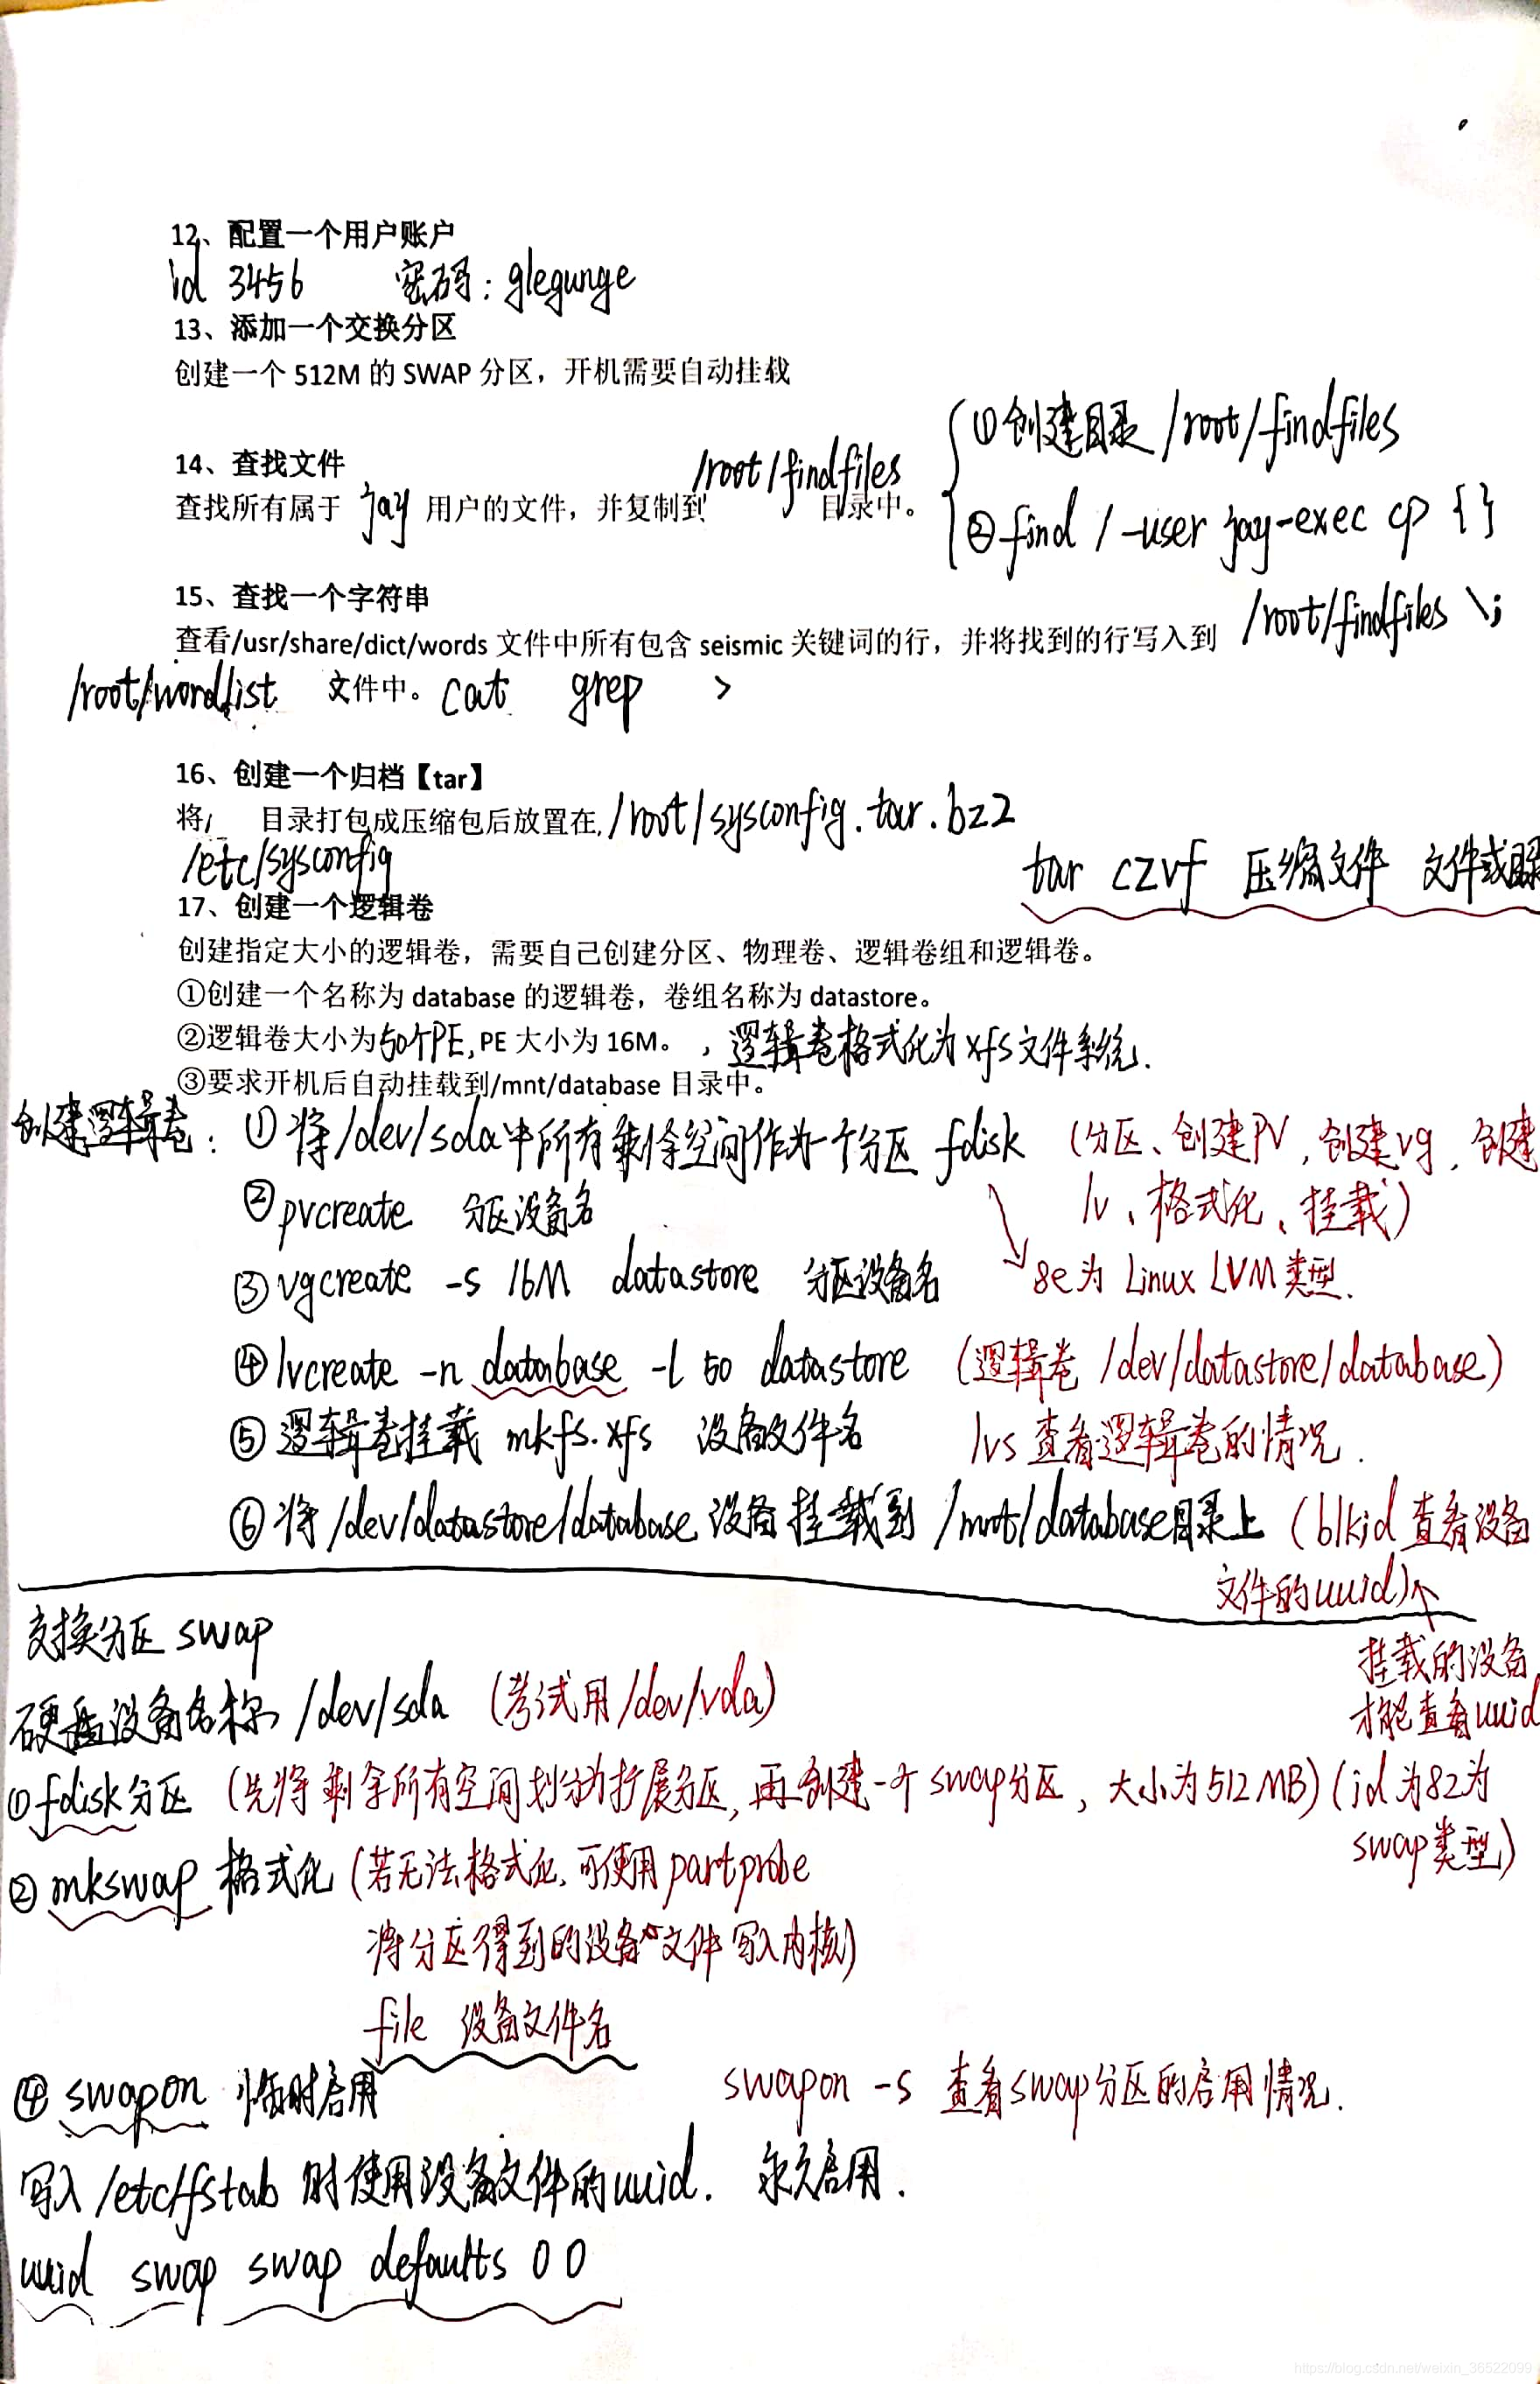 12、配置一个用户账户
id 3456 密码：glegunge
13、添加一个交换分区
创建一个 512M 的 SWAP 分区，开机需要自动挂载
14、查找文件
查找所有属于 jay 用户的文件，并复制到 /root/findfiles 目录中。
①创建目录 /root/findfiles
②find / -user jay -exec cp {}
/root/findfiles \;
15、查找一个字符串
查看/usr/share/dict/words 文件中所有包含 seismic 关键词的行，并将找到的行写入到
/root/wordlist 文件中。cat grep >
16、创建一个归档【tar】
将/ 目录打包成压缩包后放置在 /root/sysconfig.tar.bz2
/etc/sysconfig
tar czvf 压缩文件 文件或目录
17、创建一个逻辑卷
创建指定大小的逻辑卷，需要自己创建分区、物理卷、逻辑卷组和逻辑卷。
①创建一个名称为 database 的逻辑卷，卷组名称为 datastore。
②逻辑卷大小为50个PE,PE 大小为 16M。，逻辑卷格式化为xfs文件系统.
③要求开机后自动挂载到/mnt/database 目录中。
创建逻辑卷：①将/dev/sda中所有剩余空间作为一个分区 fdisk (分区、创建PV,创建vg,创建
lv、格式化、挂载)
②pvcreate 分区设备名
8e为 Linux LVM类型.
③vgcreate -s 16M datastore 分区设备名
④lvcreate -n database -l 50 datastore (逻辑卷 /dev/datastore/database)
⑤逻辑卷挂载 mkfs.xfs 设备文件名 lvs 查看逻辑卷的情况.
⑥将/dev/datastore/database 设备挂载到 /mnt/database目录上 (blkid 查看设备
文件的uuid)
挂载的设备
才能查看uuid
交换分区 swap
硬盘设备名称 /dev/sda (考试用/dev/vda)
①fdisk分区 (先将剩余所有空间划分为扩展分区,再创建一个swap分区,大小为512MB) (id为82为
swap类型)
②mkswap 格式化 (若无法格式化,可使用partprobe
将分区得到的设备文件写入内核)
file 设备文件名
④swapon 临时启用 swapon -s 查看swap分区的启用情况.
写入/etc/fstab 时使用设备文件的uuid. 永久启用.
uuid swap swap defaults 0 0
https://blog.csdn.net/weixin_36522099